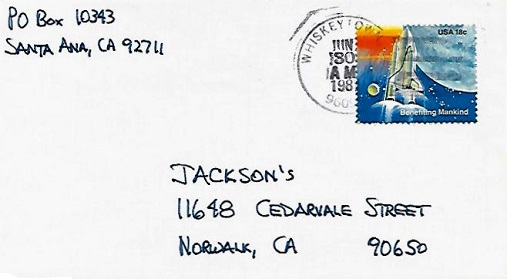 PO Box 10343
SANTA ANA, CA 92711
WHISKEYTOWN
JUN
30
AM
198
960
USA 18c
Benefiting Mankind
JACKSON'S
11648 CEDARVALE STREET
NORWALK, CA 90650